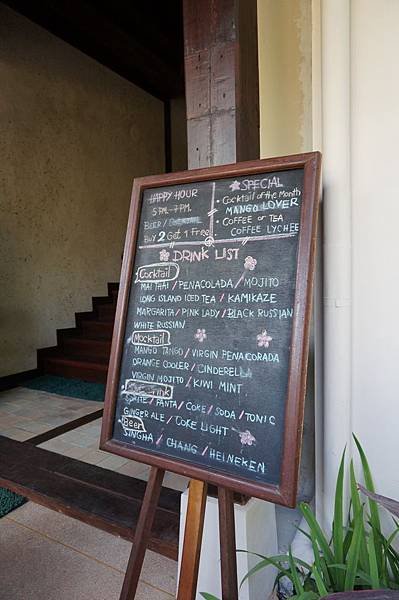 HAPPY HOUR
5 PM.-7PM.
BEER / COCKTAIL
BUY 2 Get 1 Free
SPECIAL
• Cocktail of the Month
MANGO LOVER
• COFFEE or TEA
COFFEE LYCHEE
DRINK LIST
Cocktail
MAI THAI / PENACOLADA / MOJITO
LONG ISLAND ICED TEA / KAMIKAZE
MARGARITA / PINK LADY / BLACK RUSSIAN
WHITE RUSSIAN
Mocktail
MANGO TANGO / VIRGIN PENACORADA
ORANGE COOLER / CINDERELLA
VIRGIN MOJITO / KIWI MINT
SPRITE / FANTA / COKE / SODA / TONIC
GINGER ALE / COKE LIGHT
Beer
SINGHA / CHANG / HEINEKEN